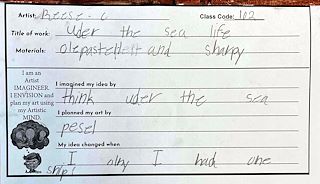 Artist: Reese. C Class Code: 102
Title of work: Uder the sea life
Materials: olepastel and sharpy
I am an
Artist
IMAGINEER.
I ENVISION and
plan my art using
my Artistic
MIND.
I imagined my idea by
think uder the sea
I planned my art by
pesel
My idea changed when
I olny I hack one
ship!